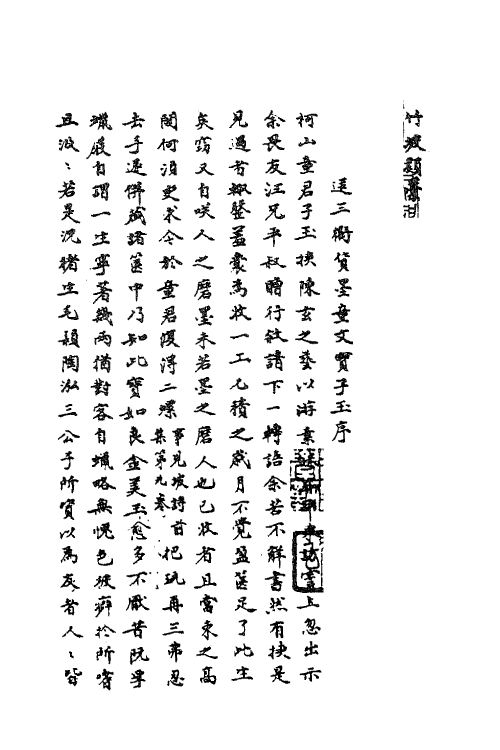 竹坡類藁
送三衢貨墨童文寶子玉序
柯山童君子玉挾陳玄之藝以游索上忽出示
余畏友汪兄平叔贈行欲請下一轉語余苦不解書然有挾是
見過者輒盤盖囊為收一工尤積之歲月不覺盈篋足了此生
矣竊又自咲人之磨墨未若墨之磨人也已收者且當束之高
閣何須更求今於童君復得二螺事見坡詩前集第九卷把玩再三弗忍
去手遂倂緘諸篋中乃知此寶如良金美玉愈多不厭昔阮孚
蠟屐自謂一生寧著幾兩猶對客自蠟略無愧色彼癖於所嗜
且汲〻若是況褚生毛穎陶泓三公子所寶以為友者人〻皆